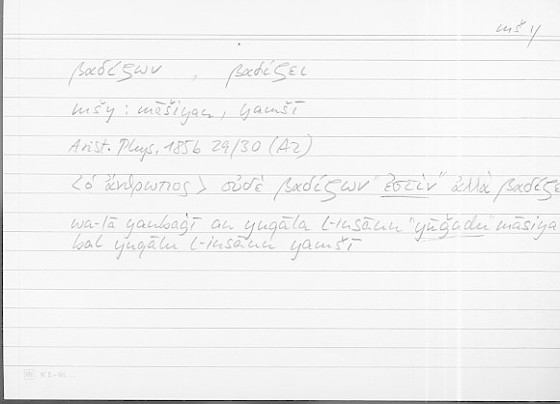 mšy
βαδίζων, βαδίζει
mšy : māšiyan, yamšī
Arist. Phys. 185b 29/30 (Ar)
<ὁ ἄνθρωπος> οὐδὲ βαδίζων "ἐστίν" ἀλλὰ βαδίζε
wa-lā yanbaġī an yuqāla l-insānu "yūǧadu" māšiya
bal yuqālu l-insānu yamšī